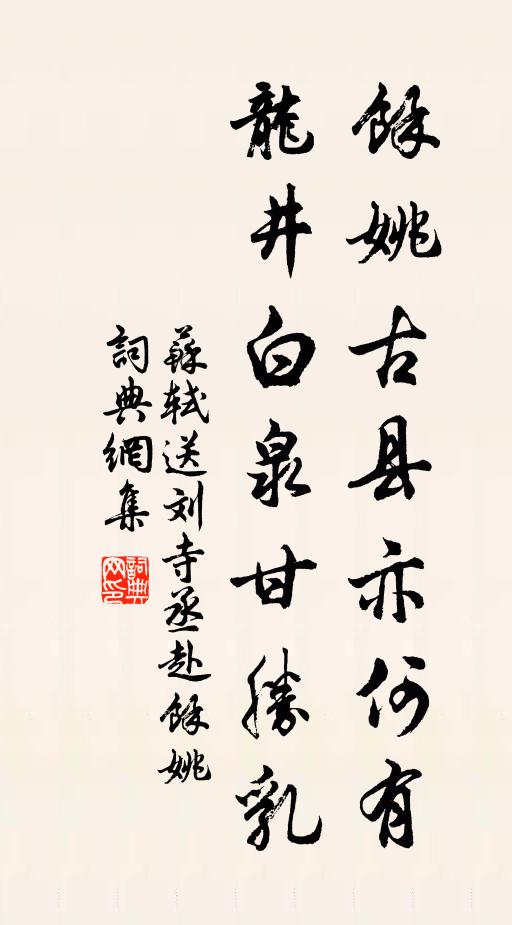 餘姚古县亦何有
龍井白泉甘勝乳
蘇軾送刘寺丞赴餘姚
詞典網集
詞典网印